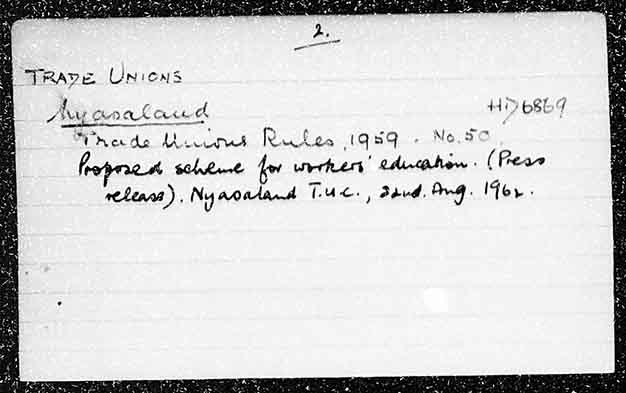 2.
TRADE UNIONS
Nyasaland HD6869
Trade Unions Rules, 1959. No. 50.
Proposed scheme for workers' education. (Press
release). Nyasaland T.U.C., 22nd. Aug. 1962.